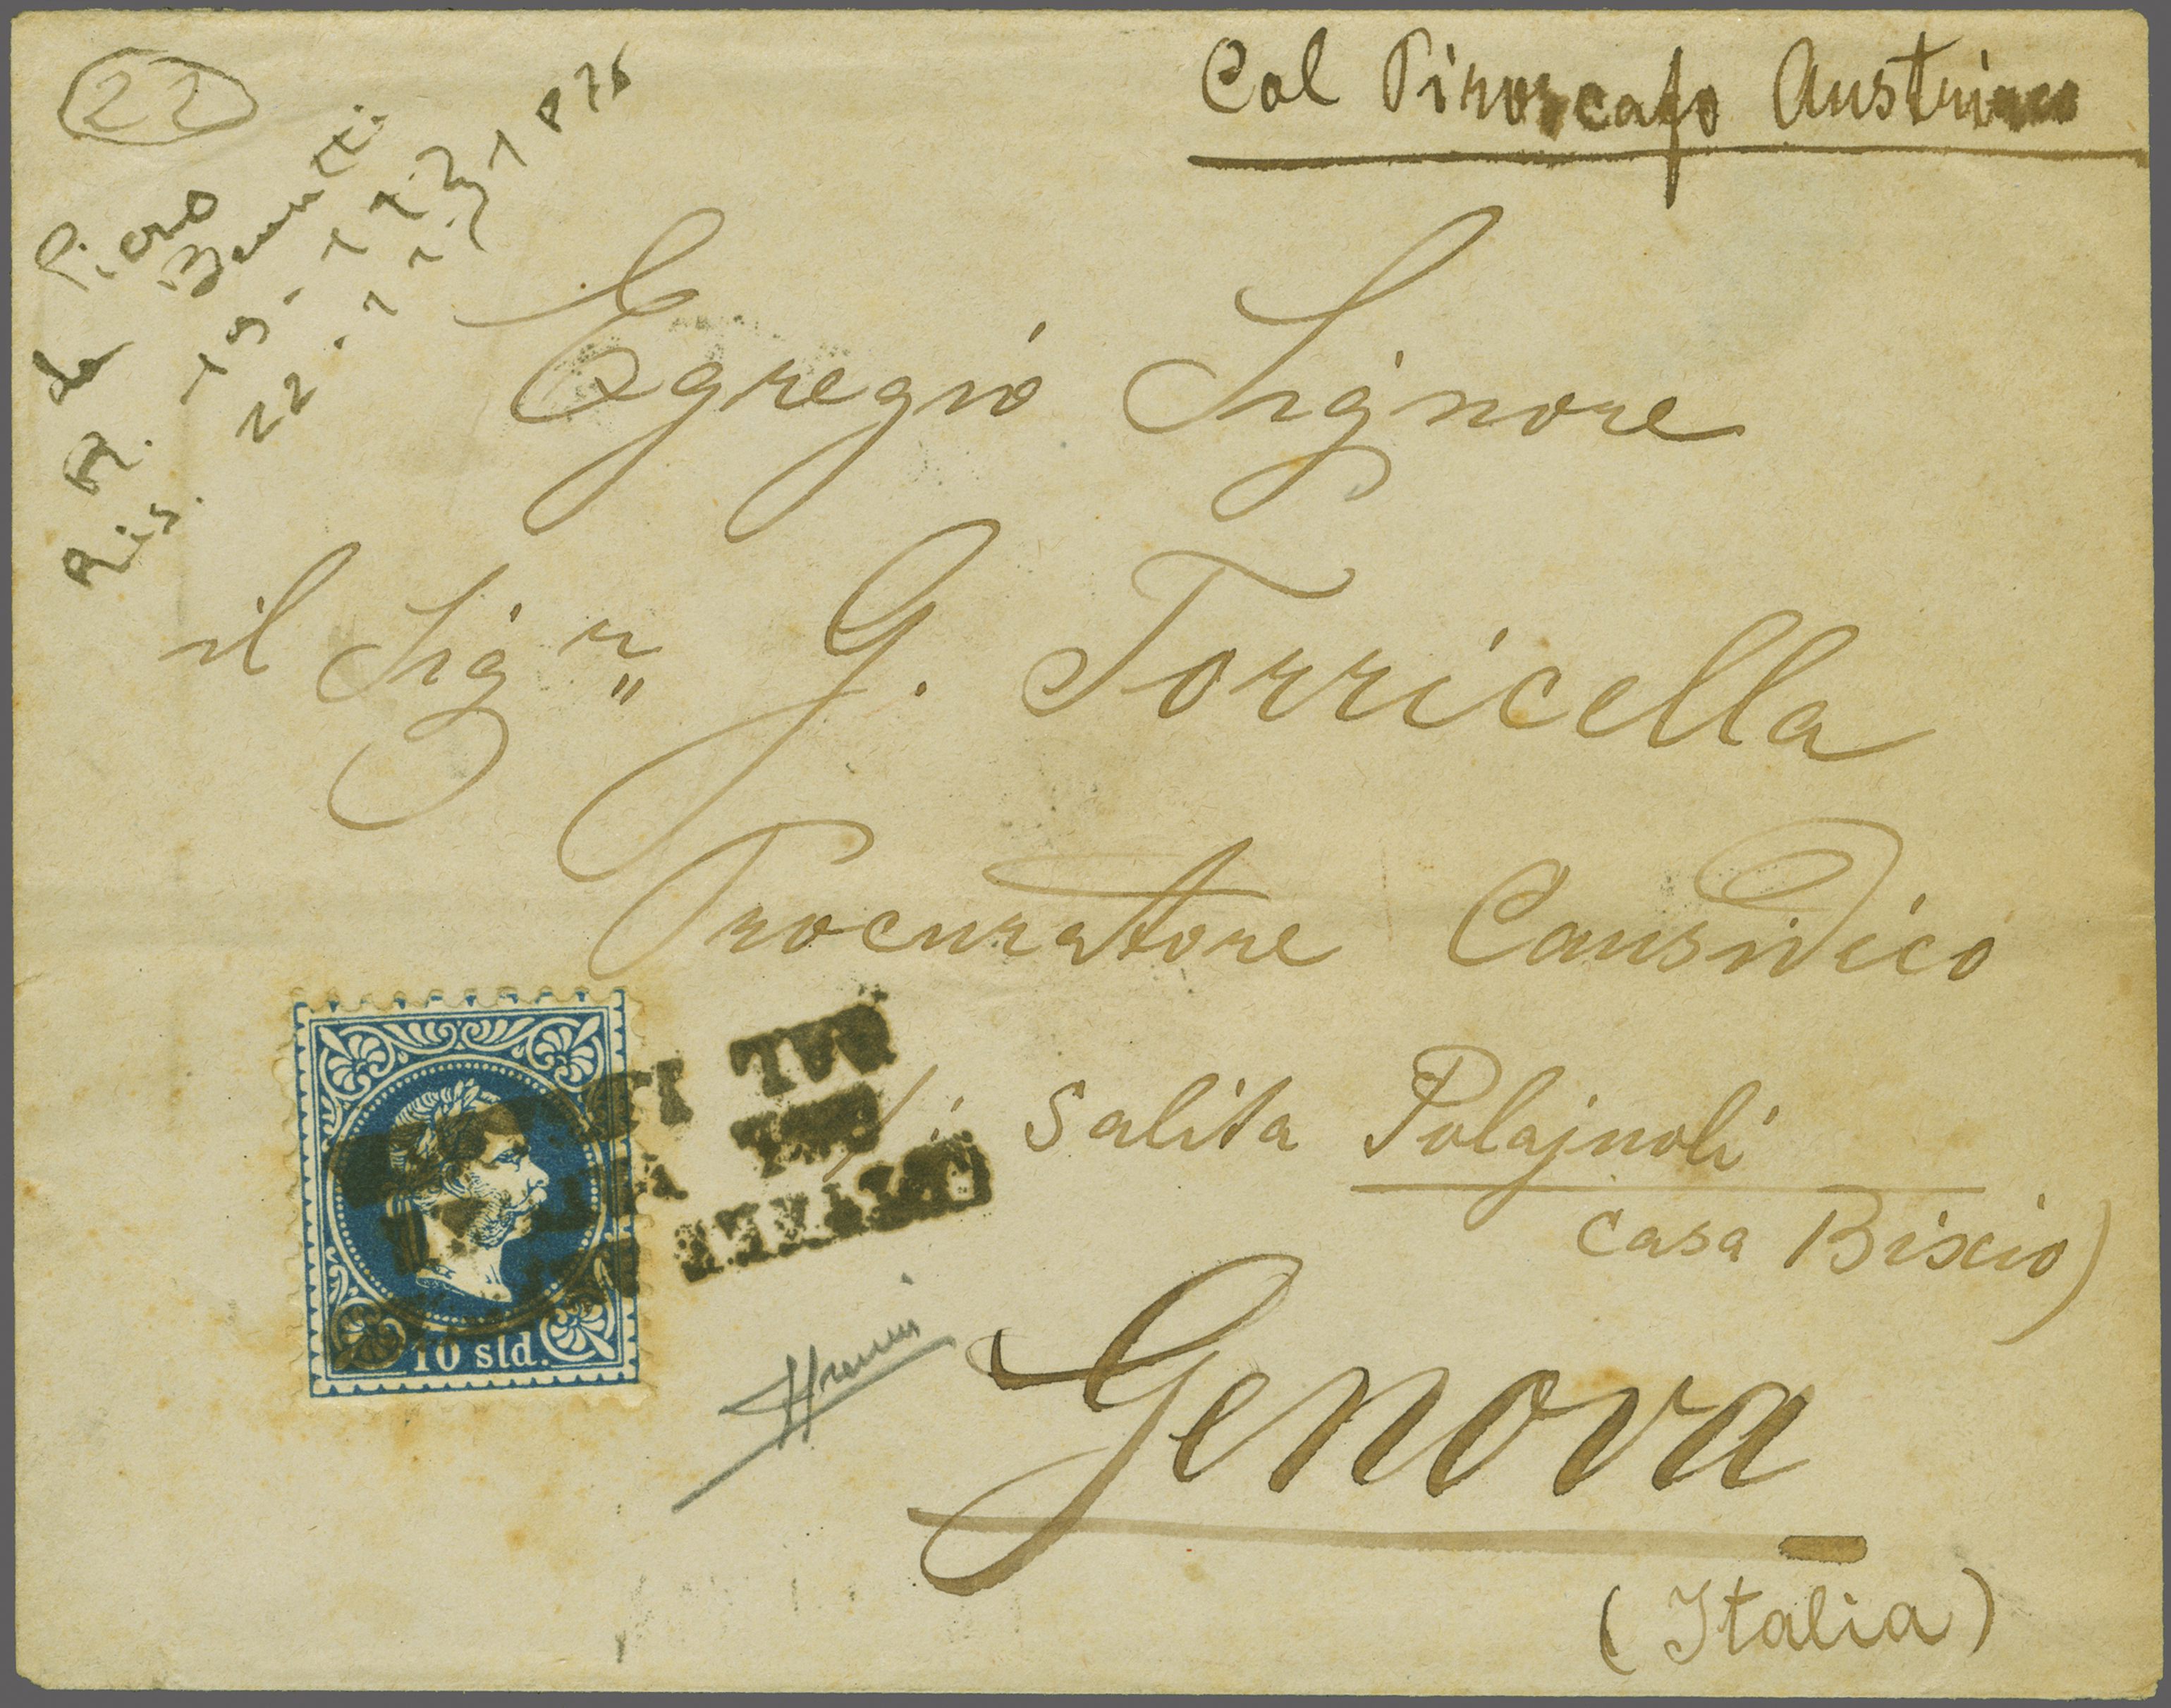 22
Col Piroscafo Austriaco
Piero
da
A. 15.
Ris. 22.
Egregio Signore
il Sigr G. Torricella
Procuratore Causidico
Salita Polajnoli
casa Bixio)
Genova
(Italia)
10 sld.